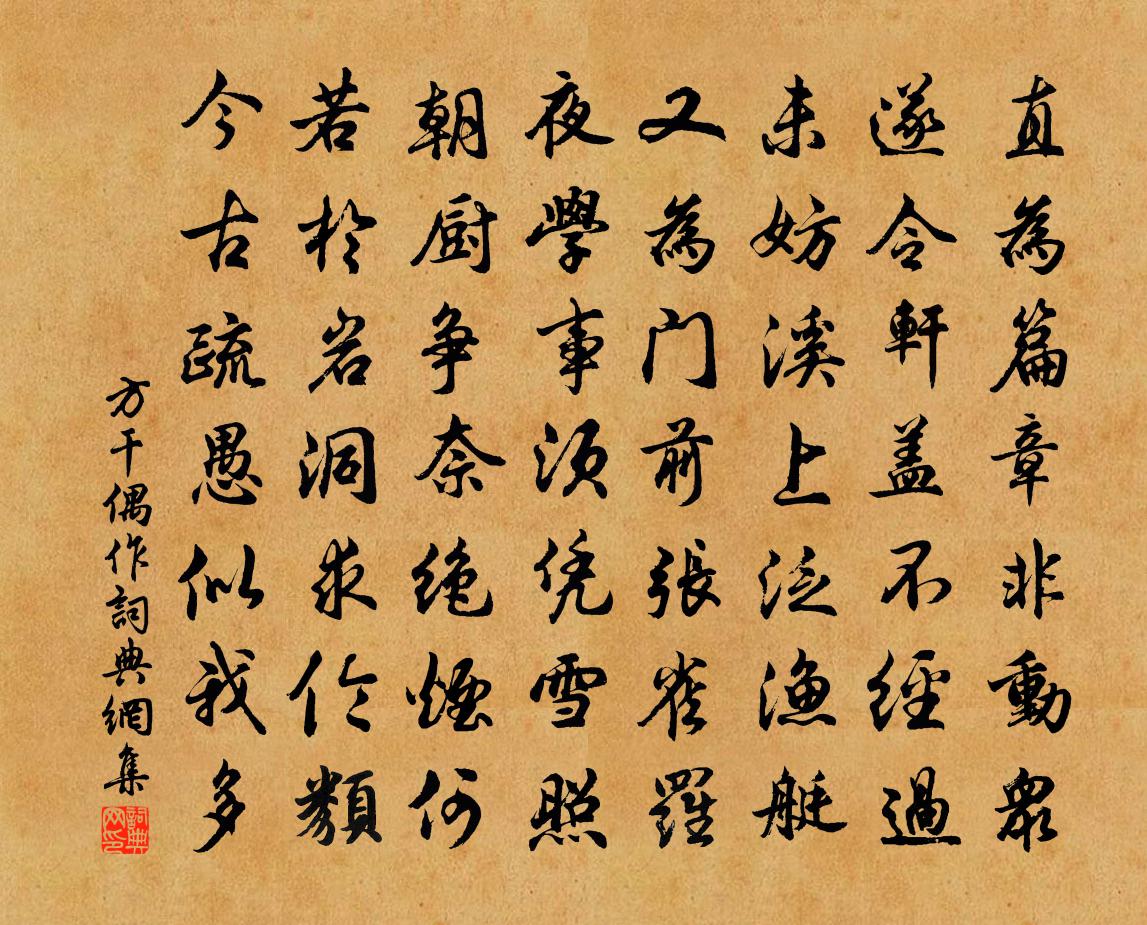 直為篇章非動衆
遂令軒盖不經過
未妨溪上泛漁艇
又為门前張雀羅
夜學事須凭雪照
朝厨争奈绝煙何
若於岩洞求伦類
今古疏愚似我多
方干偶作詞典網集
詞典网印